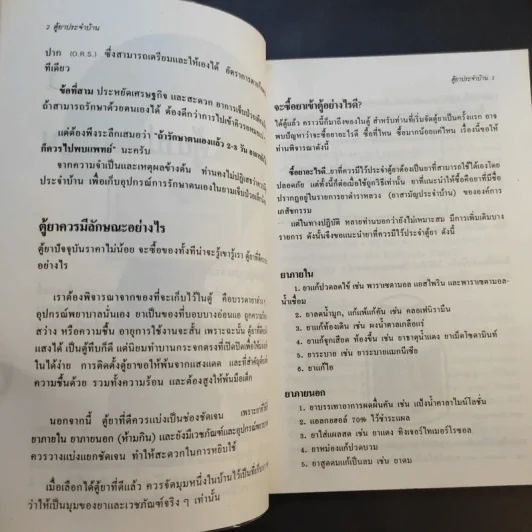 2 ตู้ยาประจำบ้าน
ปาก (O.R.S.) ซึ่งสามารถเตรียมและให้เองได้ อัตราการตาย
ทีเดียว
ข้อที่สาม ประหยัดเศรษฐกิจ และสะดวก อาการเจ็บป่วย
ถ้าสามารถรักษาด้วยตนเองได้ ต้องดีกว่าการไปเข้าคิว
แต่ต้องพึงระลึกเสมอว่า "ถ้ารักษาตนเองแล้ว 2-3 วัน
ก็ควรไปพบแพทย์" นะครับ
จากความจำเป็นและเหตุผลข้างต้น ท่านคงไม่ปฏิเสธว่า
ประจำบ้าน เพื่อเก็บอุปกรณ์การรักษาตนเองในยามเจ็บป่วย
ตู้ยาควรมีลักษณะอย่างไร
ตู้ยาปัจจุบันราคาไม่น้อย จะซื้อของทั้งทีน่าจะรู้เขารู้เรา ตู้ยาที่ดี
อย่างไร
เราต้องพิจารณาจากของที่จะเก็บไว้ในตู้ คือบรรดายา
อุปกรณ์พยาบาลนั่นเอง ยาเป็นของที่บอบบางอ่อนแอ ถูกความ
สว่าง หรือความชื้น อายุการใช้งานจะสั้น เพราะฉะนั้น ตู้ยา
แสงได้ เป็นตู้ทึบก็ดี แต่นิยมทำบานกระจกตรงที่เปิดปิดเพื่อให้
ในได้ง่าย การติดตั้งตู้ยาขอให้พ้นจากแสงแดด และที่สำคัญ
ความชื้นด้วย รวมทั้งความร้อน และต้องสูงให้พ้นมือเด็ก
นอกจากนี้ ตู้ยาที่ดีควรแบ่งเป็นช่องชัดเจน เพราะยา
ยาภายใน ยาภายนอก (ห้ามกิน) และยังมีเวชภัณฑ์และอุปกรณ์
ควรวางแบ่งแยกชัดเจน ทำให้สะดวกในการหยิบใช้
เมื่อเลือกได้ตู้ยาที่ดีแล้ว ควรจัดมุมหนึ่งในบ้านไว้เป็นที่
ว่าให้เป็นมุมของยาและเวชภัณฑ์จริง ๆ เท่านั้น
ตู้ยาประจำบ้าน 3
จะซื้อยาเข้าตู้อย่างไรดี?
ได้ตู้แล้ว คราวนี้ก็มาถึงของในตู้ สำหรับท่านที่เริ่มจัดตู้ยาเป็นครั้งแรก อาจ
พบปัญหาว่าจะซื้อยาอะไรดี ซื้อที่ไหน ซื้อมากน้อยแค่ไหน เรื่องนี้ขอให้
ท่านพิจารณาดังนี้
ซื้อยาอะไรดี..ยาที่ควรมีไว้ประจำตู้ยาต้องเป็นยาที่สามารถใช้ได้เองโดย
ปลอดภัย แต่ทั้งนี้ก็ต่อเมื่อใช้ถูกวิธีเท่านั้น ยาที่แนะนำให้ซื้อคือยาที่มีชื่อ
ปรากฏอยู่ในรายการยาตำราหลวง (ยาสามัญประจำบ้าน) ขององค์การ
เภสัชกรรม
แต่ในทางปฏิบัติ หลายท่านบอกว่ายังไม่เหมาะสม มีการเพิ่มเติมบาง
รายการ ดังนั้นจึงขอแนะนำยาที่ควรมีไว้ประจำตู้ยา ดังนี้
ยาภายใน
1. ยาแก้ปวดลดไข้ เช่น พาราเซตามอล แอสไพริน และพาราเซตามอล-
น้ำเชื่อม
2. ยาลดน้ำมูก, แก้แพ้แก้คัน เช่น คลอเฟนิรามีน
3. ยาแก้ท้องเดิน เช่น ผงน้ำตาลเกลือแร่
4. ยาแก้จุกเสียด ท้องขึ้น เช่น ยาธาตุน้ำแดง ยาเม็ดโซดามินท์
5. ยาระบาย เช่น ยาระบายแมกนีเซีย
6. ยาแก้ไอ
ยาภายนอก
1. ยาบรรเทาอาการผดผื่นคัน เช่น แป้งน้ำคาลาไมน์โลชั่น
2. แอลกอฮอล์ 70% ไว้ชำระแผล
3. ยาใส่แผลสด เช่น ยาแดง ทิงเจอร์ไทเมอร์โรซอล
4. ยาหม่องแก้ปวดบวม
5. ยาสูดดมแก้เป็นลม เช่น ยาดม